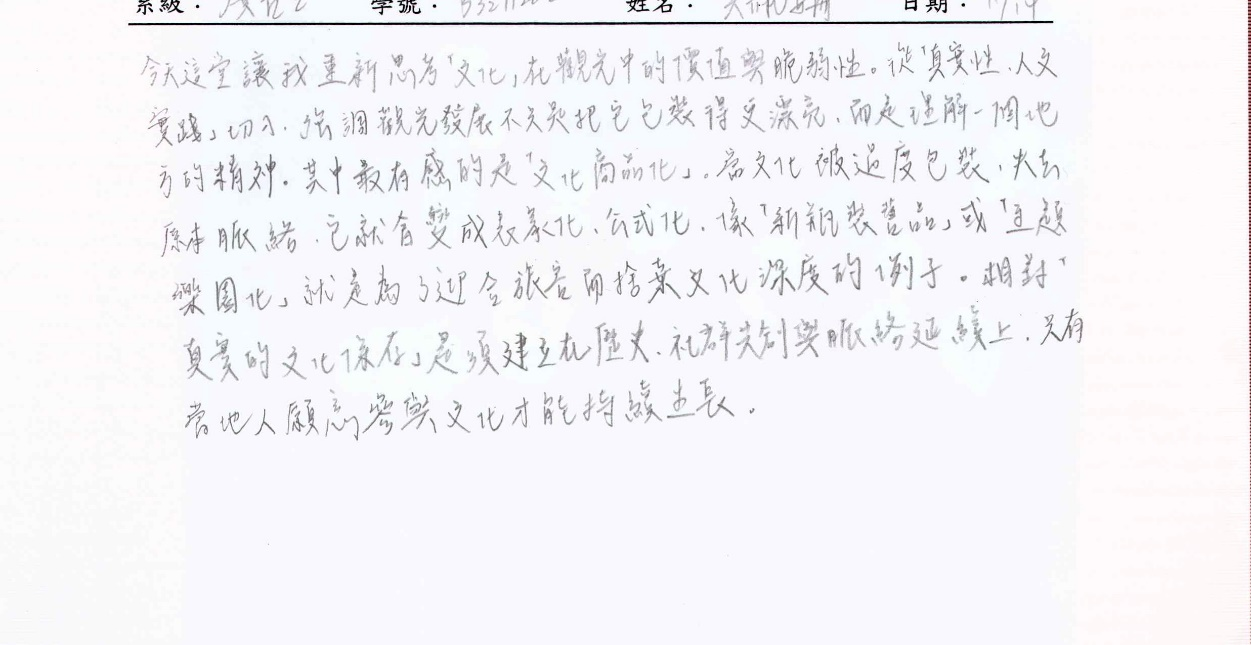 系級： 學號： 姓名： 日期：
今天這堂讓我重新思考「文化」在觀光中的價值與脆弱性。從「真實性、人文
實踐」切入，強調觀光發展不只是把它包裝得更漂亮，而是理解一個地
方的精神。其中最有感的是「文化商品化」。當文化被過度包裝、失去
原本脈絡，它就會變成表象化、公式化，像「新瓶裝舊品」或「主題
樂園化」就是為了迎合旅客而捨棄文化深度的例子。相對「
真實的文化保存」是須建立在歷史、社群共創與脈絡延續上，只有
當地人願意參與文化才能持續生長。